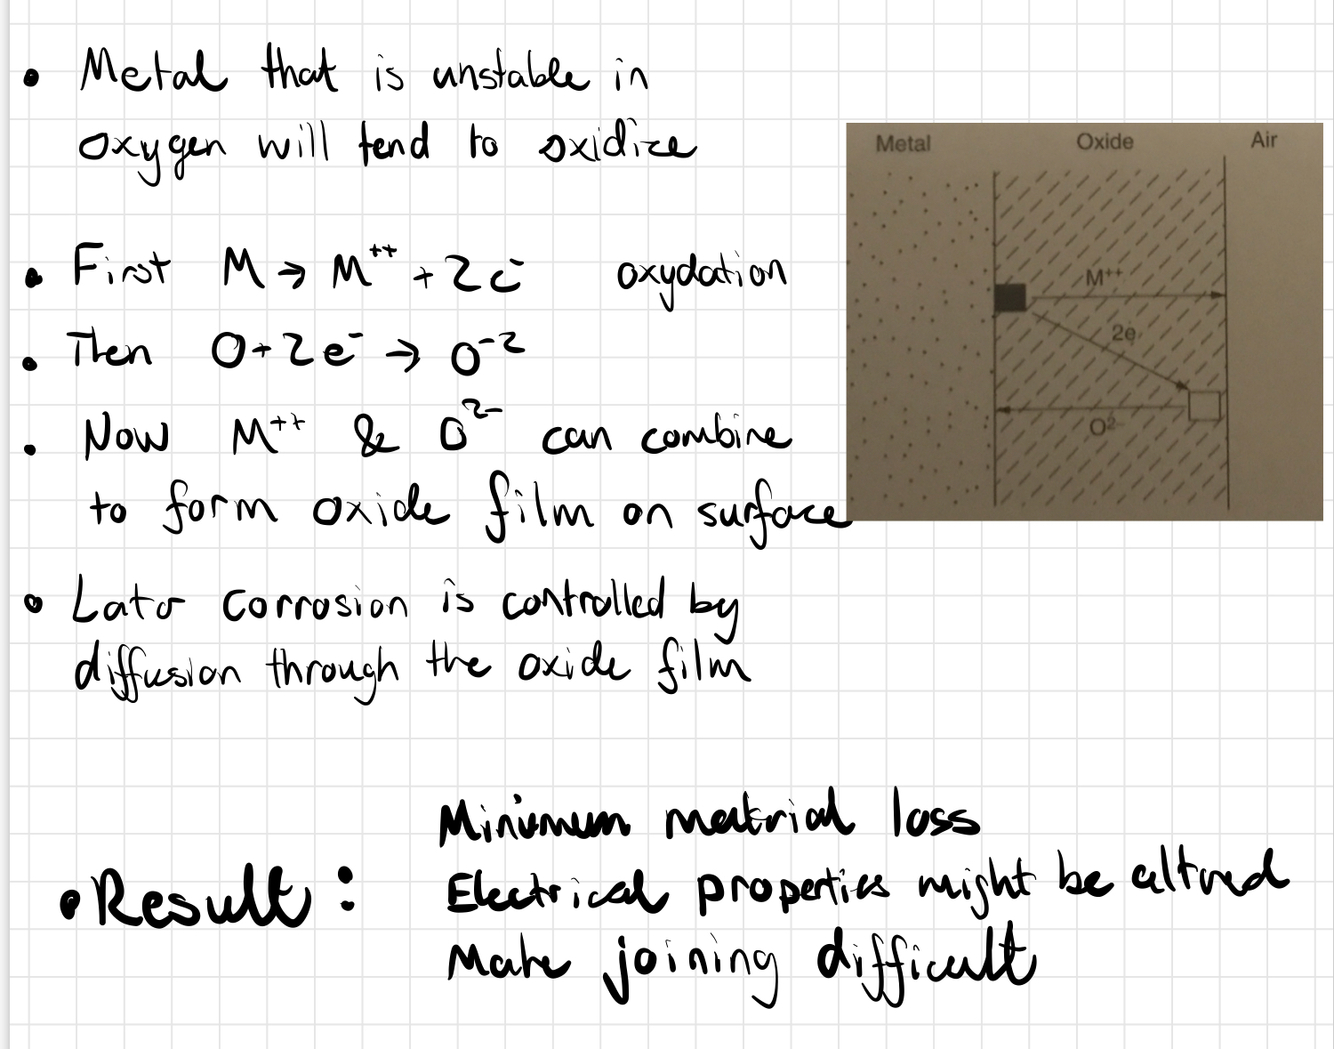 • Metal that is unstable in
oxygen will tend to oxidize
• First M → M⁺⁺ + 2e⁻ oxydation
• Then O + 2e⁻ → O⁻²
• Now M⁺⁺ & O²⁻ can combine
to form oxide film on surface
• Later corrosion is controlled by
diffusion through the oxide film
Metal Oxide Air
M⁺⁺
2e
O²⁻
• Result :
Minimum material loss
Electrical properties might be altered
Make joining difficult